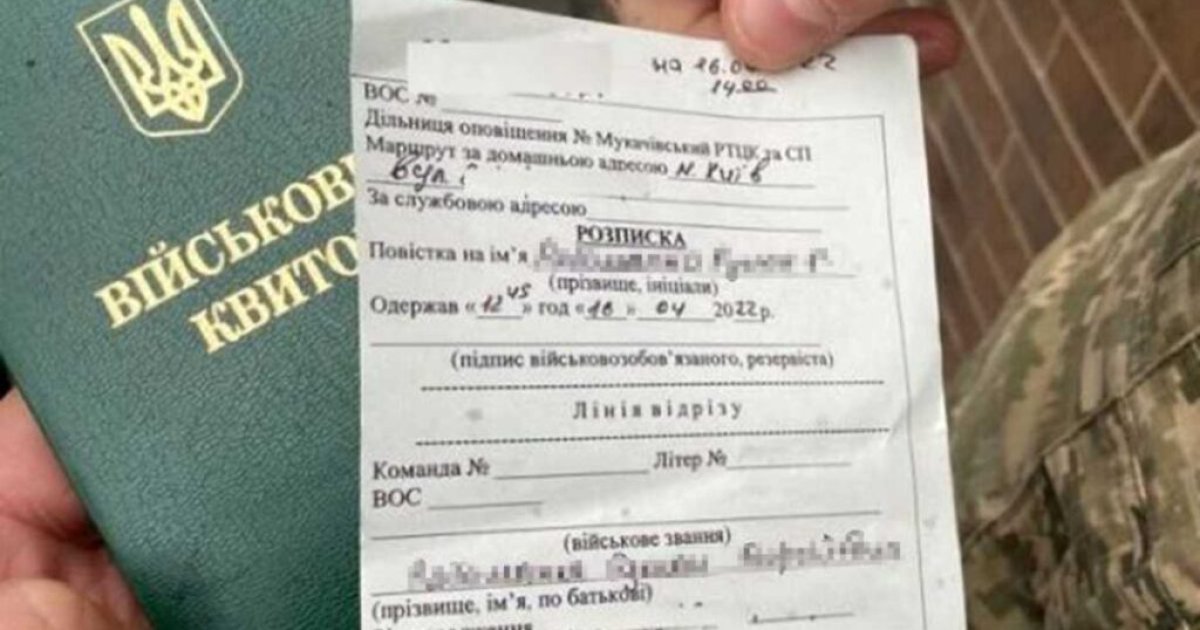 ВІЙСЬКОВ
КВИТО
на 16.0
14.00
ВОС №
Дільниця оповіщення № Мукачівський РТЦК та СП
Маршрут за домашньою адресою м. Київ
вул.
За службовою адресою
РОЗПИСКА
Повістка на ім’я
(прізвище, ініціали)
Одержав «12 45» год «16» 04 2022 р.
(підпис військовозобов’язаного, резервіста)
Лінія відрізу
Команда № Літер №
ВОС
(військове звання)
(прізвище, ім’я, по батькові)